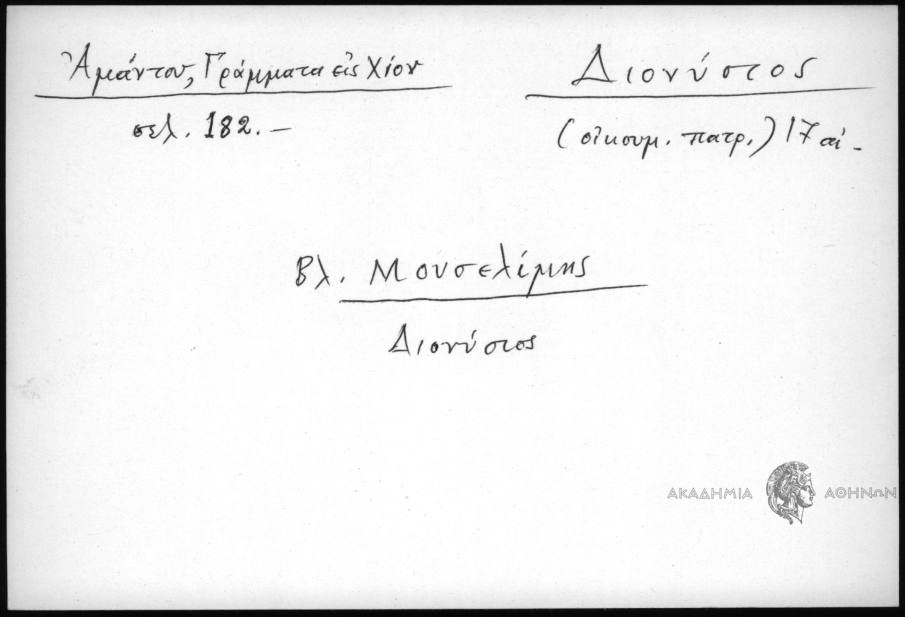 Ἀμάντου, Γράμματα εἰς Χίον
σελ. 182. –
Διονύσιος
(οἰκουμ. πατρ.) 17 αἰ.
Βλ. Μουσελίμης
Διονύσιος
ΑΚΑΔΗΜΙΑ ΑΘΗΝΩΝ